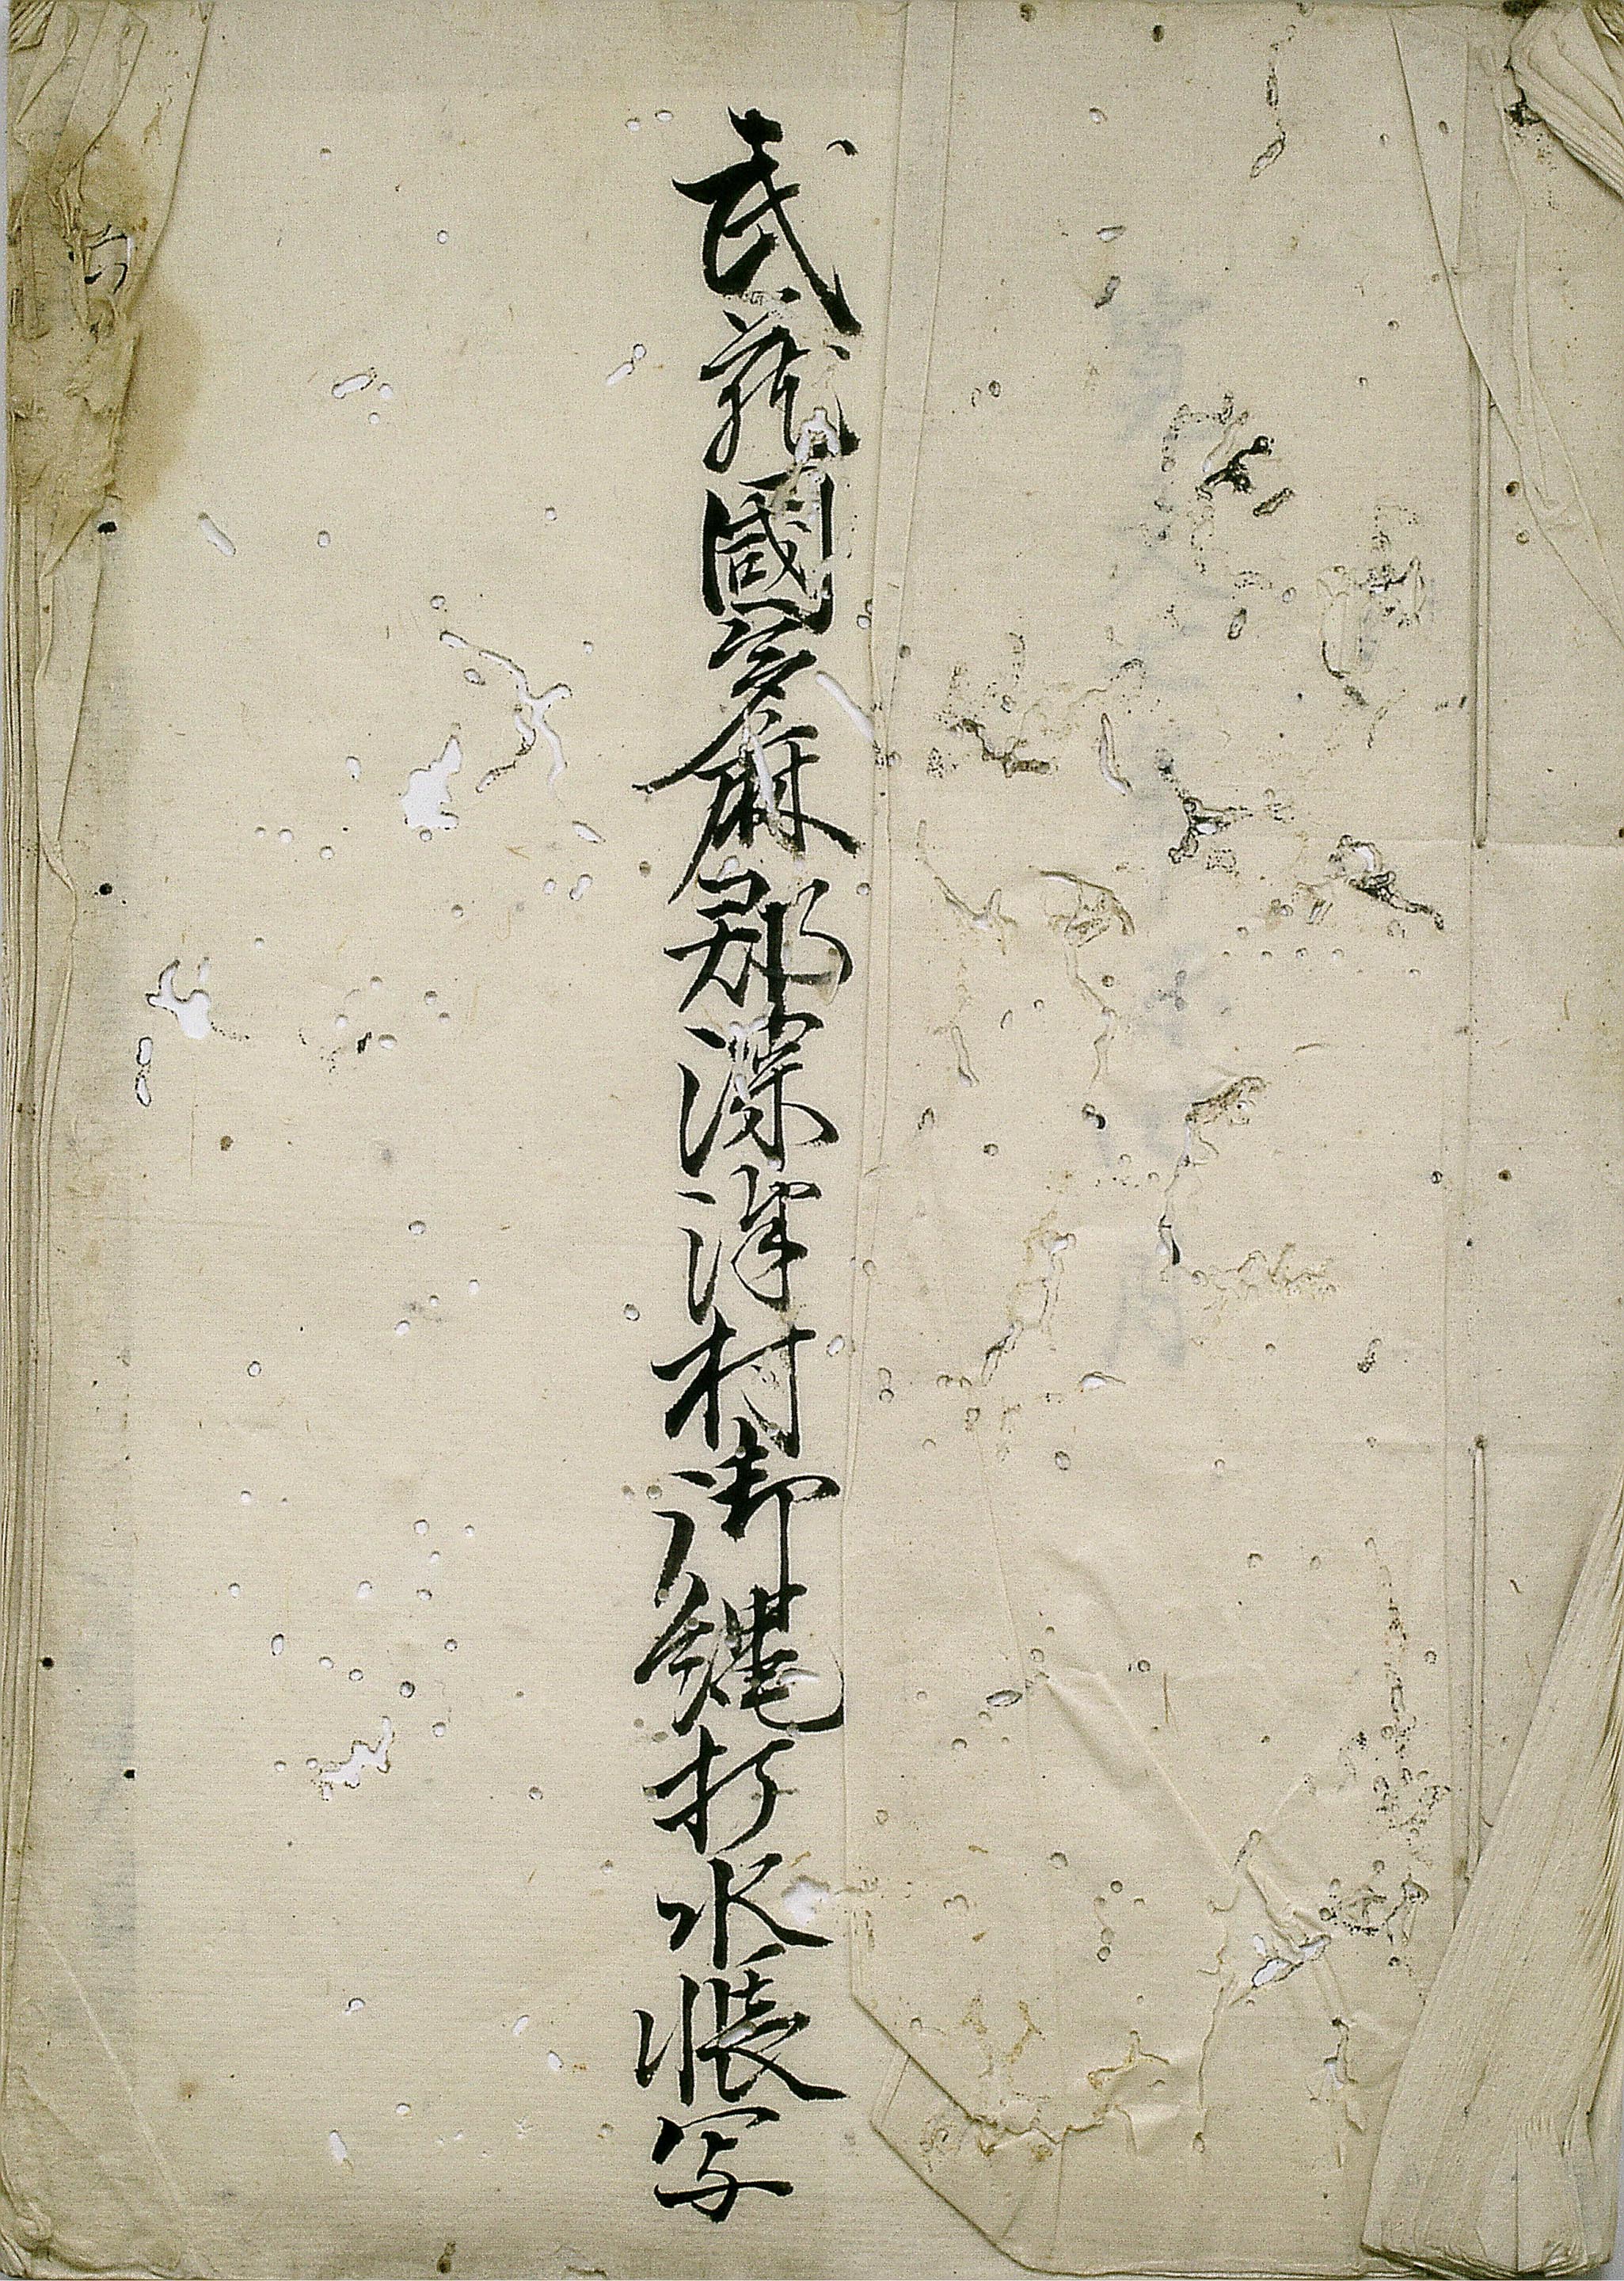 武蔵國多麻郡深澤村御縄打水帳写